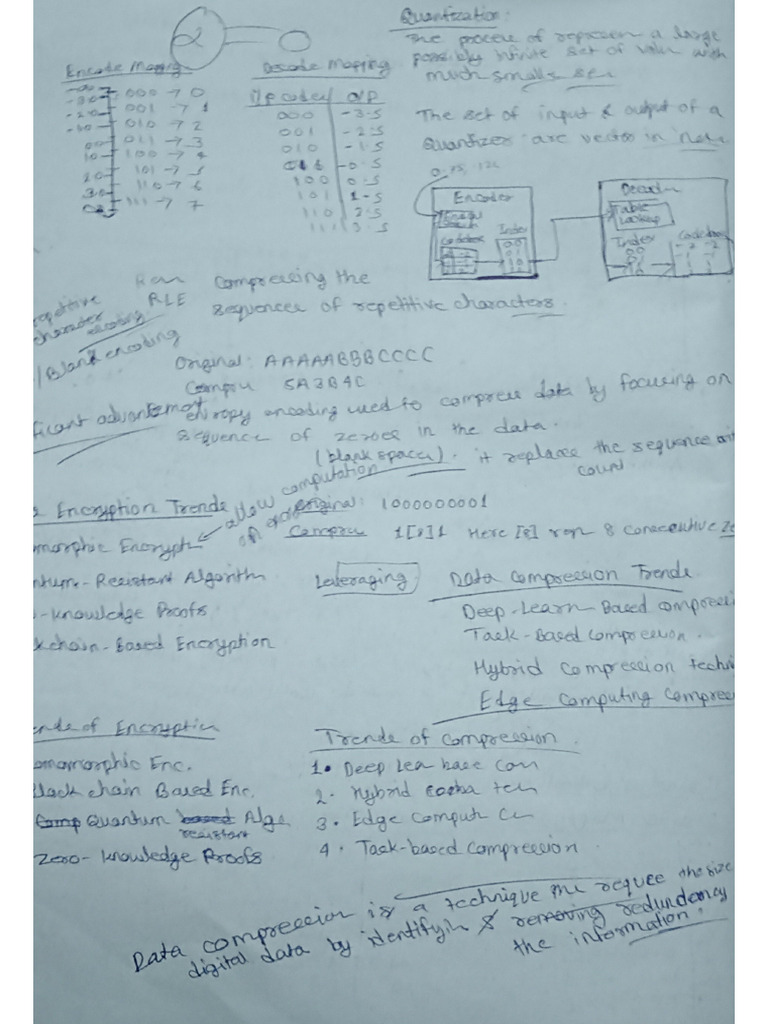 Quantization:
The process of represen a large
possibly infinite set of value with
much smaller set
Encode Mapping
000 → 0
001 → 1
010 → 2
011 → 3
100 → 4
101 → 5
110 → 6
111 → 7
-3.0
-2.0
-1.0
0.0
1.0
2.0
3.0
Decode Mapping
I/p codes O/P
000 -3.5
001 -2.5
010 -1.5
011 -0.5
100 0.5
101 1.5
110 2.5
111 3.5
The set of input & output of a
Quantizer are vector in
Encoder
Codebook
Index
Decoder
Table
Lookup
Index
Codebook
Run
RLE
compressing the
sequences of repetitive characters.
repetitive
character
encoding
/Blank encoding
Original: AAAAABBBCCCC
Compre 5A3B4C
ficant advancement
entropy encoding used to compress data by focusing on
sequence of zeroes in the data.
(blank spaces). it replace the sequence with
count
Encryption Trends
allow computation
Original: 1000000001
Compre 1[8]1 Here [8] rep 8 consecutive
omorphic Encrypt
ntum-Resistant Algorith
-knowledge Proofs
kchain-Based Encryption
Leveraging
Data Compression Trends
Deep-Learn-Based compressi
Task-Based compression.
Hybrid compression techni
Edge Computing Compres
ends of Encryption
omomorphic Enc.
Block chain Based Enc.
Quantum based Algo
resistant
Zero-knowledge Proofs
Trends of compression.
1. Deep Lea base Com
2. Hybrid comba tech
3. Edge comput Cm
4. Task-based compression.
Data compression is a technique the requce the size
digital data by identifyin & removing redundency
the information.